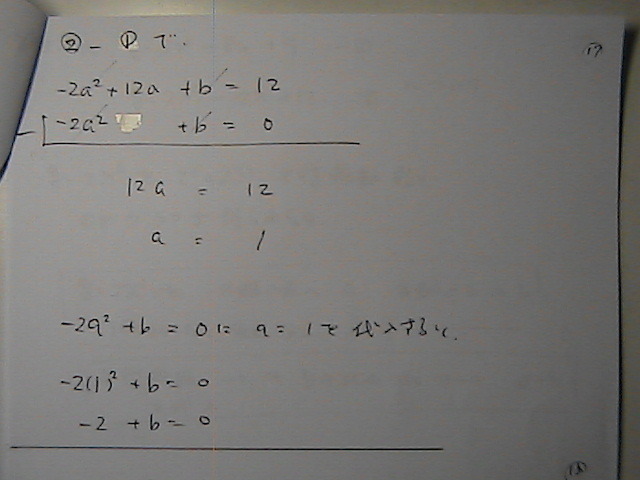 ② - ① で.
⑰
-2a² + 12a + b = 12
-2a² + b = 0
12a = 12
a = 1
-2a² + b = 0 に a = 1 を代入すると.
-2(1)² + b = 0
-2 + b = 0
⑱